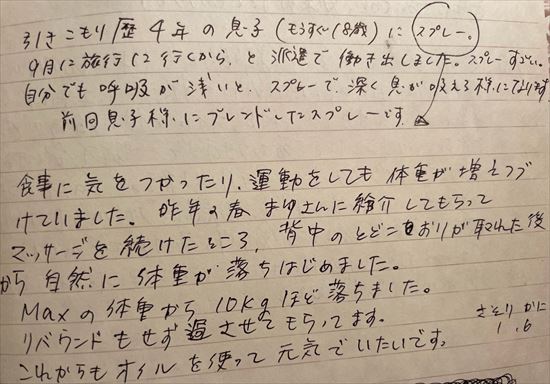 引きこもり歴4年の息子(もうすぐ18歳)にスプレー。
9月に旅行に行くから、と派遣で働き出しました。スプレーすごい。
自分でも呼吸が浅いと、スプレーで、深く息が吸える様になります
前回息子様にブレンドしたスプレーです。
食事に気をつかったり、運動をしても体重が増えつづ
けていました。昨年の春まゆさんに紹介してもらって
マッサージを続けたところ、背中のとどこおりが取れた後
から自然に体重が落ちはじめました。
Maxの体重から10kgほど落ちました。
リバウンドもせず過させてもらってます。
これからもオイルを使って元気でいたいです。
さそり かに
1.6